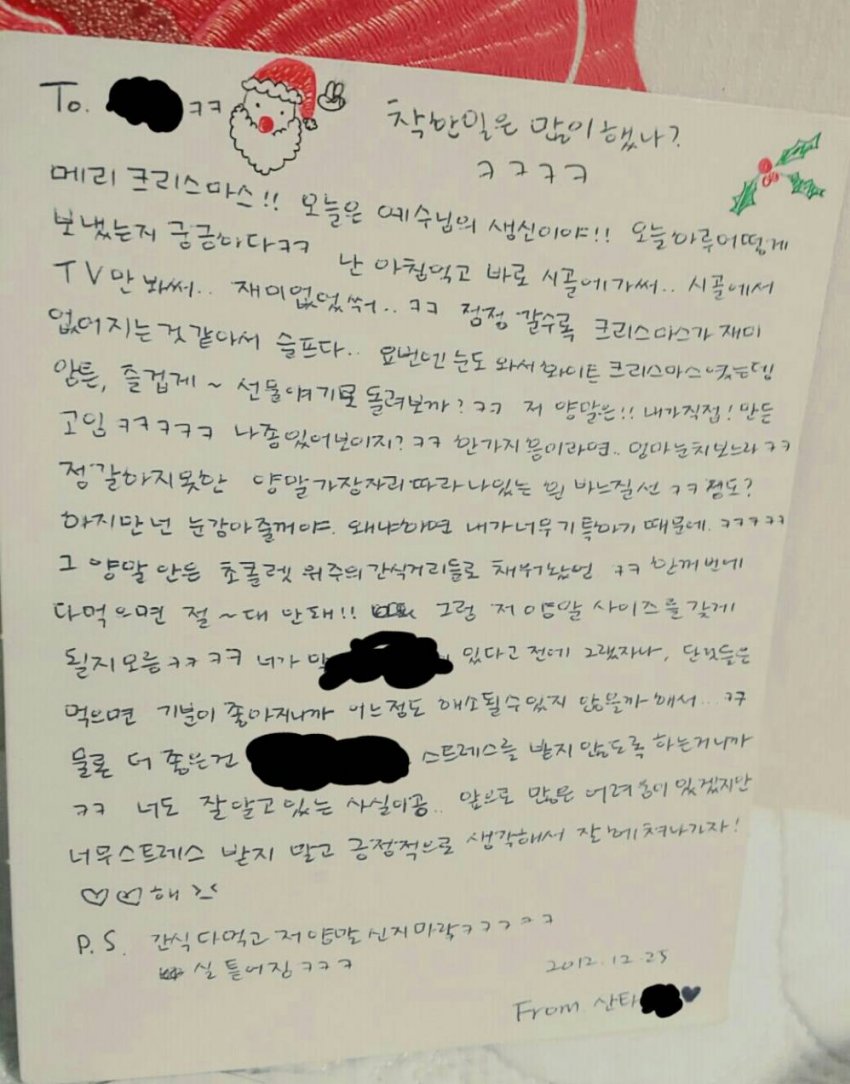 To. ㅋㅋ
착한일은 많이 했나?
ㅋㅋㅋㅋ
메리 크리스마스!! 오늘은 예수님의 생신이야!! 오늘하루어떻게
보냈는지 궁금하다ㅋㅋ 난 아침먹고 바로 시골에가써.. 시골에서
TV만 봐써.. 재미없었쒀.. ㅋㅋ 점점 갈수록 크리스마스가 재미
없어지는것같아서 슬프다.. 요번엔눈도 와서화이트 크리스마스였는뎁
암튼, 즐겁게~ 선물얘기로 돌려보까?ㅋㅋ 저 양말은!! 내가직접! 만든
고임 ㅋㅋㅋㅋㅋ 나좀있어보이지?ㅋㅋ 한가지흠이라면.. 엄마눈치보느라ㅋㅋ
정갈하지못한 양말가장자리따라나있는 흰 바느질선 ㅋㅋ정도?
하지만넌 눈감아줄꺼야. 왜냐하면 내가너무기특하기 때문에. ㅋㅋㅋㅋㅋ
그 양말 안은 초콜렛 위주의간식거리들로 채워놨엉 ㅋㅋ 한꺼번에
다먹으면 절~대 안돼!! 그럼 저 양말 사이즈를갖게
될지모릉ㅋㅋㅋ 너가 막 있다고 전에 그랬자나, 단것들은
먹으면 기분이 좋아지니까 어느정도 해소될수있지 않을까해서...ㅋㅋ
물론 더 좋은건 스트레스를 받지 않도록 하는거니까
ㅋㅋ 너도 잘알고있는 사실이공.. 앞으로 많은 어려움이 있겠지만
너무스트레스 받지 말고 긍정적으로 생각해서 잘헤쳐나가자!
♡♡해
P.S. 간식다먹고 저양말신지마락ㅋㅋㅋㅋㅋ
실 틑어짐ㅋㅋㅋ
2012.12.25
From. 산타 ♥